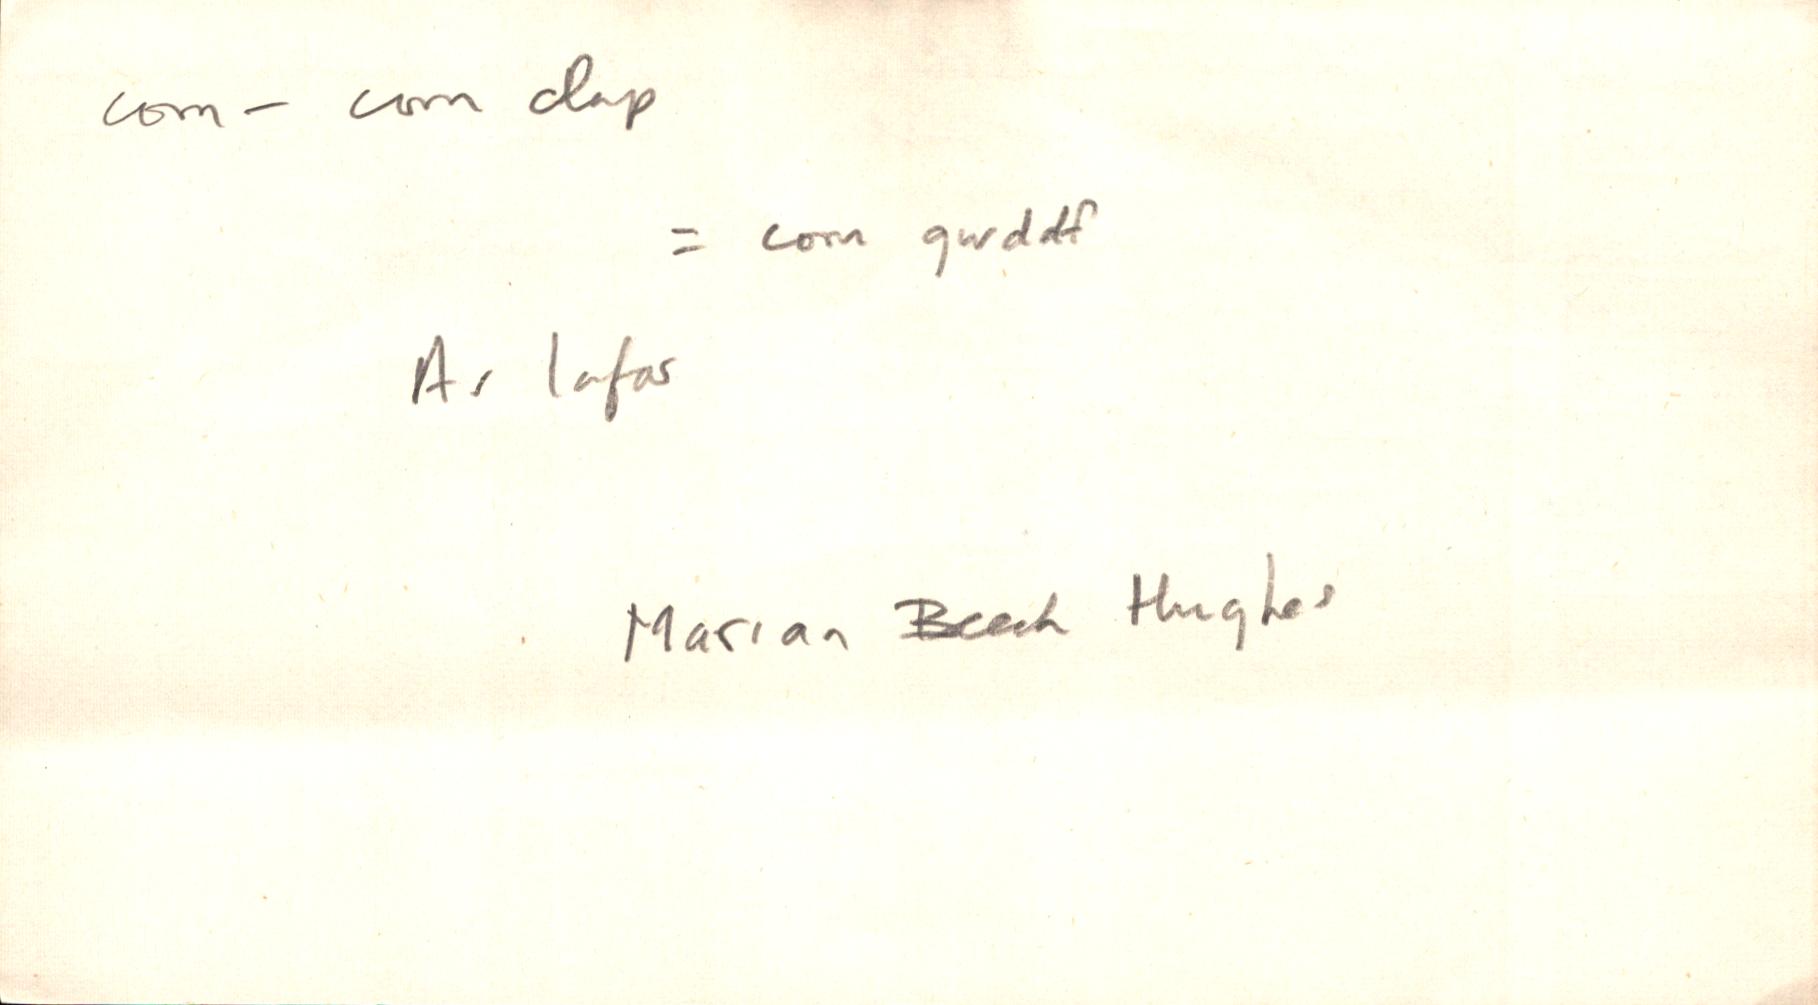 corn – corn clap
= corn gwddf
Ar lafar
Marian Beech Hughes